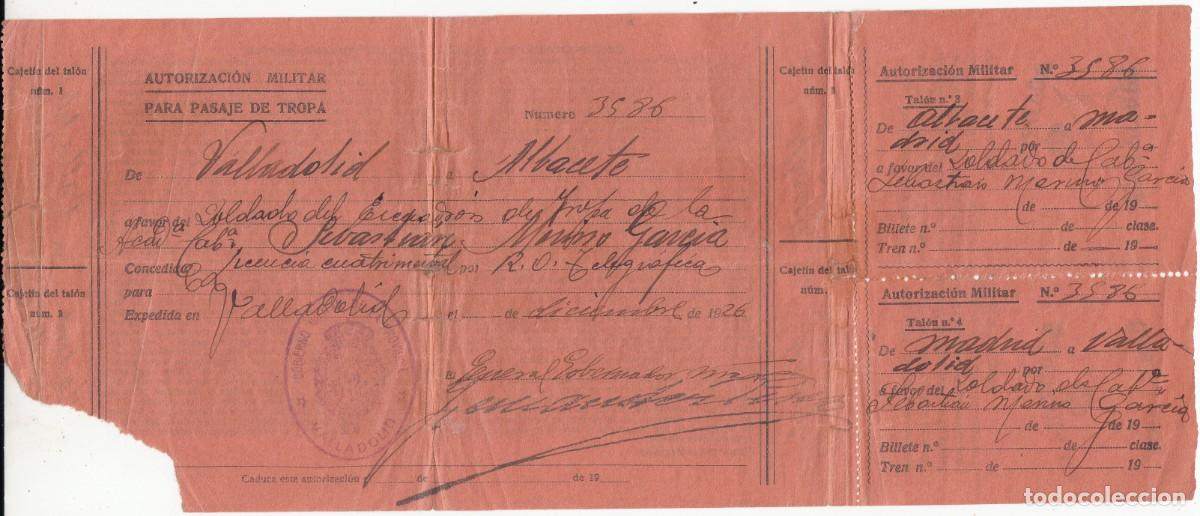 Cajetín del talón
núm. 1
AUTORIZACIÓN MILITAR
PARA PASAJE DE TROPA
Numero 3986
De Valladolid a Albacete
a favor del Soldado del Escuadrón de Tropa de la
Acad.ª Cabª Sebastián Merino García
Concedida licencia cuatrimestral por R.O. telegráfica
para
Expedida en Valladolid el de diciembre de 1926
El General Gobernador
GOBIERNO
VALLADOLID
Caduca esta autorización de de 19
Cajetín del talón
núm. 2
Cajetín del talón
núm. 3
Cajetín del talón
núm.
Autorización Militar N.º 3986
Talón n.º 3
De Albacete a Ma-
drid por
a favor del Soldado de Cabª
Sebastián Merino García
de de 19
Billete n.º clase.
Tren n.º de 19
Autorización Militar N.º 3986
Talón n.º 4
De Madrid a Valla-
dolid por
a favor del Soldado de Cabª
Sebastián Merino García
de de 19
Billete n.º clase.
Tren n.º de 19
todocoleccion